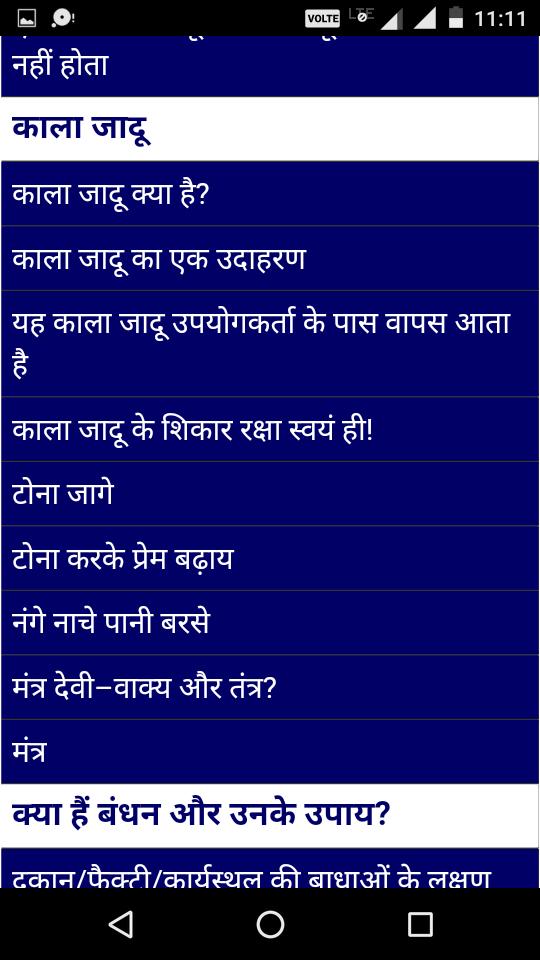 VOLTE LTE 11:11
नहीं होता
काला जादू
काला जादू क्या है?
काला जादू का एक उदाहरण
यह काला जादू उपयोगकर्ता के पास वापस आता
है
काला जादू के शिकार रक्षा स्वयं ही!
टोना जागे
टोना करके प्रेम बढ़ाय
नंगे नाचे पानी बरसे
मंत्र देवी–वाक्य और तंत्र?
मंत्र
क्या हैं बंधन और उनके उपाय?
दुकान/फैक्ट्री/कार्यस्थल की बाधाओं के लक्षण